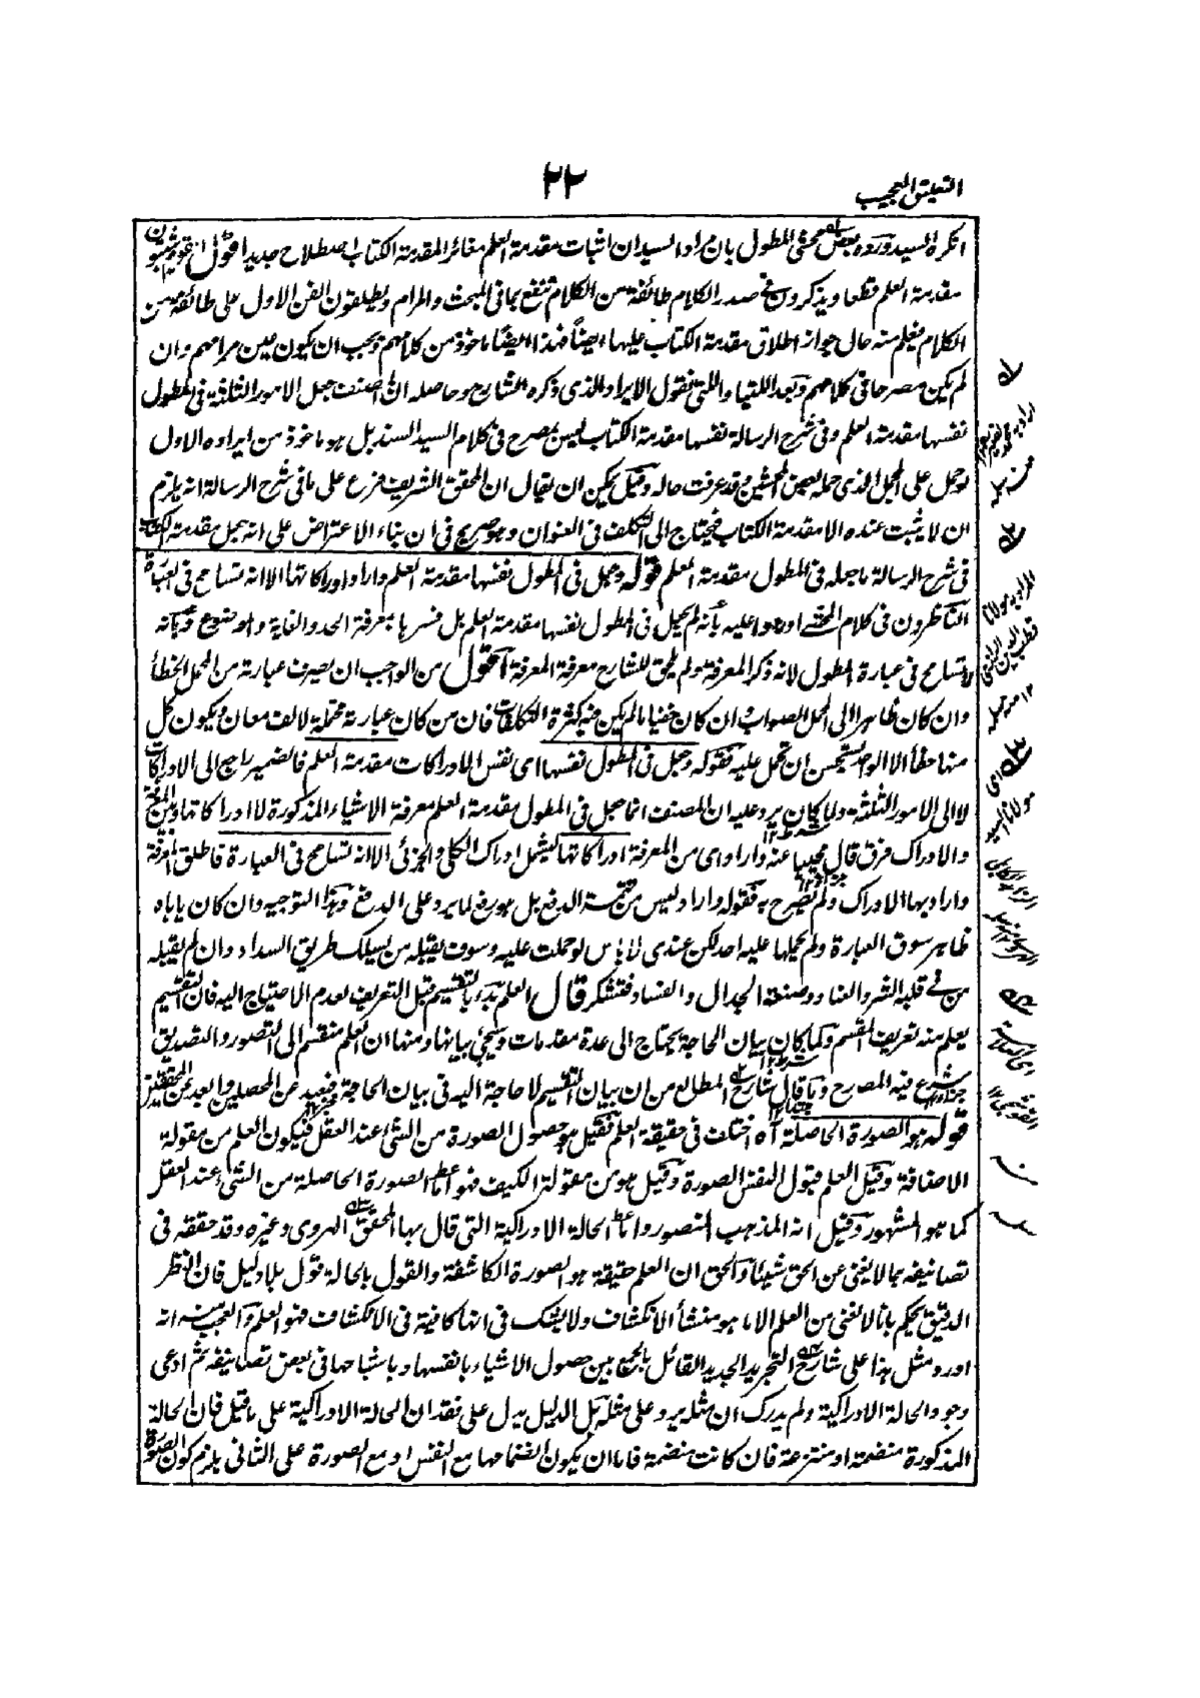 التعليق العجيب
٢٢
انكره السيد ورده بعض محشي المطول بان مراد السيد ان اثبات مقدمة العلم مغائر المقدمة الكتاب اصطلاح جديد اقول انهم يثبتون
مقدمة العلم قطعا ويذكرون في صدر الكلام طائفة من الكلام تنفع بما في المبحث والمرام ويطلقون الفن الاول على طائفة من
الكلام فيعلم منه حال جواز اطلاق مقدمة الكتاب عليها ايضاً فهذا ايضاً ماخوذ من كلامهم ويجب ان يكون من مرامهم وان
لم يكن مصرحا في كلامهم وبعد اللتيا واللتي نقول الايراد الذي ذكره الشارح وحاصله ان المصنف جعل الامور الثلثة في المطول
نفسها مقدمة العلم وفي شرح الرسالة نفسها مقدمة الكتاب ليس بمصرح في كلام السيد السند بل هو ماخوذ من ايراده الاول
لو حمل على المحمل الذي حمله بعض المحشين وقد عرفت حاله وقيل يمكن ان يقال ان المحقق الشريف فرع على ما في شرح الرسالة انه يلزم
ان لا يثبت عنده الا مقدمة الكتاب فيحتاج الى التكلف في العنوان وهو صريح في ان بناء الاعتراض على انه جعل مقدمة الكتاب
في شرح الرسالة ما جعله في المطول مقدمة العلم قوله وجعل في المطول نفسها مقدمة العلم واراد ادراكاتها الا انه تسامح في العبارة
الناظرون في كلام المحشي اوردوا عليه بأنه لم يجعل في المطول نفسها مقدمة العلم بل فسرها بمعرفة الحد والغاية والموضوع وبانه
لا تسامح في عبارة المطول لانه ذكر المعرفة ولم يحق للشارح معرفة المعرفة اقول من الواجب ان يصرف عبارة من المحمل الخطأ
وان كان ظاهرا الى المحمل الصواب وان كان خفيا ما لم يكن فيه كثرة التكلفات فان من كان عبارته محتملة لالف معان ويكون كل
منها خطأ الا الواحد يستحسن ان تحمل عليه فقوله وجعل في المطول نفسها اى نفس الادراكات مقدمة العلم فالضمير راجع الى الادراكات
لا الى الامور الثلثة ولما كان يرد عليه ان المصنف انما جعل في المطول مقدمة العلم معرفة الاشياء المذكورة لا ادراكاتها وبين المعرفة
والادراك فرق قال مجيبا عنه واراد اى من المعرفة ادراكاتها ليشمل ادراك الكلي والجزئي الا انه تسامح في العبارة فاطلق المعرفة
واراد بها الادراك ولم يصرح به فقوله واراد ليس من تتمة الدفع بل هو رفع لما يرد على الدفع وهذا التوجيه وان كان يأباه
ظاهر سوق العبارة ولم يحملها عليه احد لكن عندي لا بأس لو حملت عليه وسوف يقبله من يسلك طريق السداد وان لم يقبله
من في قلبه الشر والعناد وصنعته الجدال والفساد فتشكر قال العلم بدء بالتقسيم قبل التعريف لعدم الاحتياج اليه فان التقسيم
يعلم منه تعريف المقسم وكما كان بيان الحاجة يحتاج الى عدة مقدمات وسيجئ بيانها ومنها ان العلم منقسم الى التصور والتصديق
شرع فيه المصرح وما قال شارح المطالع من ان بيان التقسيم لا حاجة اليه في بيان الحاجة فبعيد عن المحصلين وابعد عن المحققين
قوله هو الصورة الحاصلة آه اختلف في حقيقة العلم فقيل هو حصول الصورة من الشئ عند العقل فيكون العلم من مقولة
الاضافة وقيل العلم قبول النفس الصورة وقيل هو من مقولة الكيف فهو اما الصورة الحاصلة من الشئ عند العقل
كما هو المشهور وقيل انه المذهب المنصور واما الحالة الادراكية التي قال بها المحقق الهروي وغيره وقد حققه في
تصانيفه بما لا يغني عن الحق شيئاً والحق ان العلم حقيقة هو الصورة الكاشفة والقول بالحالة قول بلا دليل فان النظر
الدقيق يحكم بانا لا نعني من العلم الا ما هو منشأ الانكشاف ولا يشك في انها كافية في الانكشاف فهو العلم والعجب منه انه
اورد مثل هذا على شارح التجريد الجديد القائل بالجمع بين حصول الاشياء بانفسها وباشباحها في بعض تصانيفه ثم ادعى
وجود الحالة الادراكية ولم يدرك ان مثله يرد على مثله بل الدليل يدل على فقدان الحالة الادراكية على ما قيل فان الحالة
المذكورة منضمة او منتزعة فان كانت منضمة فاما ان يكون انضمامها مع النفس او مع الصورة على الثاني يلزم كون الصورة